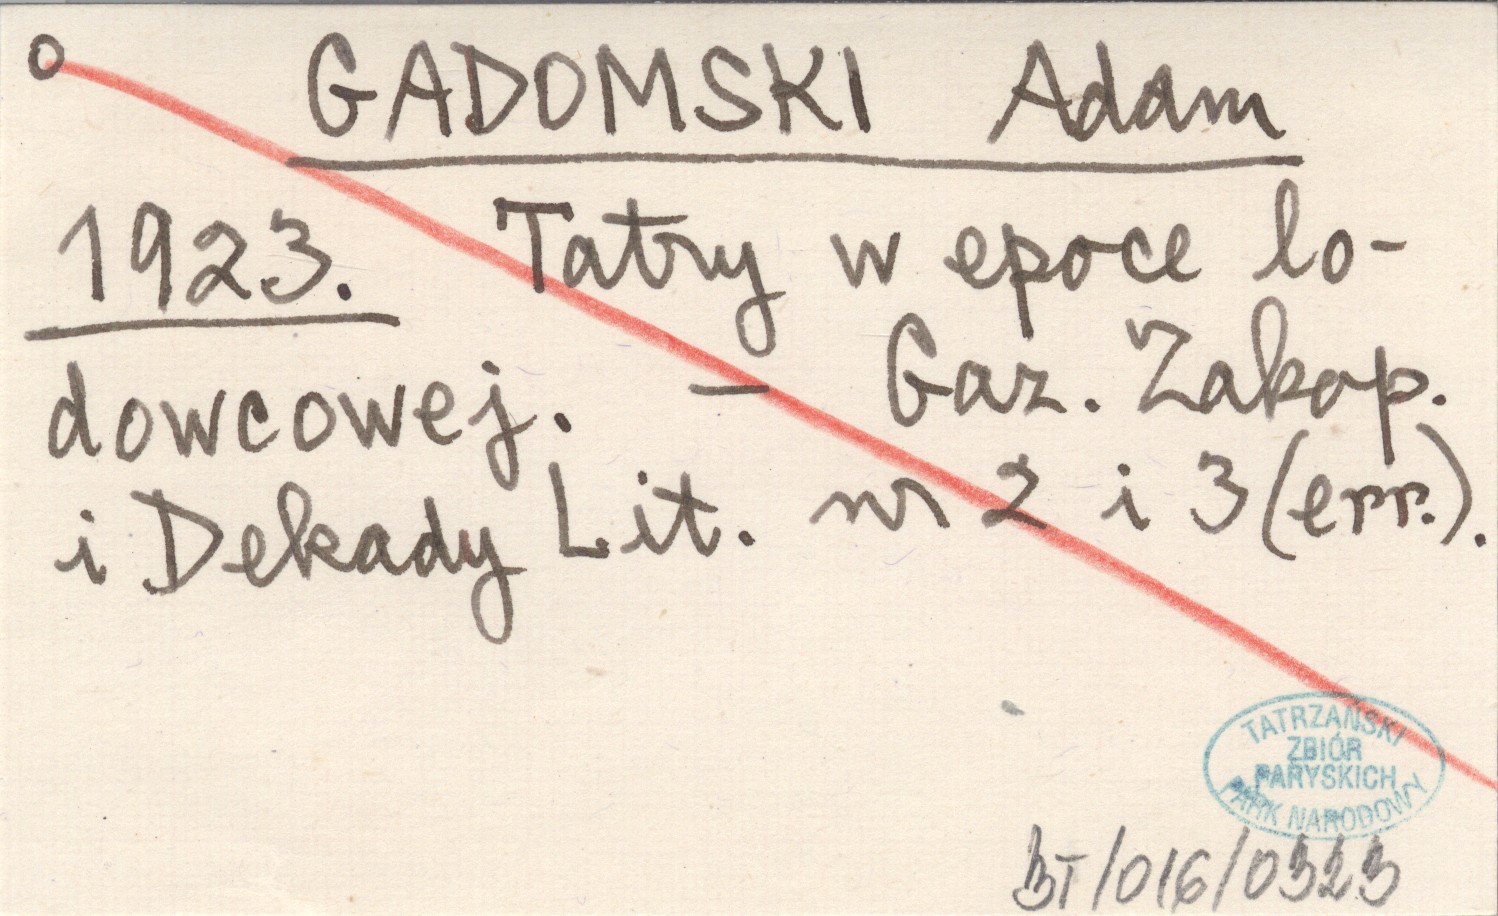 o GADOMSKI Adam
1923. Tatry w epoce lo-
dowcowej. — Gaz. Zakop.
i Dekady Lit. nr 2 i 3 (err.).
TATRZAŃSKI
ZBIÓR
PARYSKICH
PARK NARODOWY
BT/016/0323